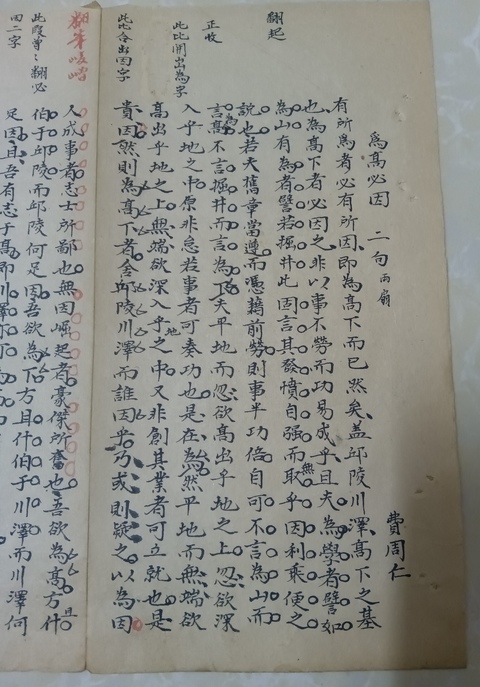 為高必因 二句 兩扇
費周仁
有所為者必有所因即為高下而已然矣蓋邱陵川澤高下之基
也為高下者必因之非以事不勞而功易成乎且夫為學者譬如
為山有為者譬若掘井此因言其發憤自强而無取乎因利乘便之
說也若夫舊章當遵而憑藉前勞則事半功倍自可不言為山而
言為高不言掘井而言為下夫平地而忽欲高出乎地之上忽欲深
入乎地之中原非怠若事者可奏功也是在為然平地而無端欲
高出乎地之上無端欲深入乎地之中又非創其業者可立就也是
貴因然則為高下者全邱陵川澤而誰因乎乃或則疑之以為因
翻起
正收
此比開出為字
此比合出因字
人成事者志士所鄙也無因崛起者豪傑所奮也吾欲為高方且什
伯于邱陵而邱陵何足因吾欲為下方且什伯于川澤而川澤何
足因且吾有志于高即川澤亦
翻筆
此段單翻必
因二字